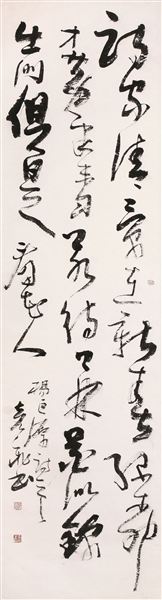 詩家清景在新春綠柳
才黃半未勻若待上林花似錦
出門俱是看花人
楊巨源詩